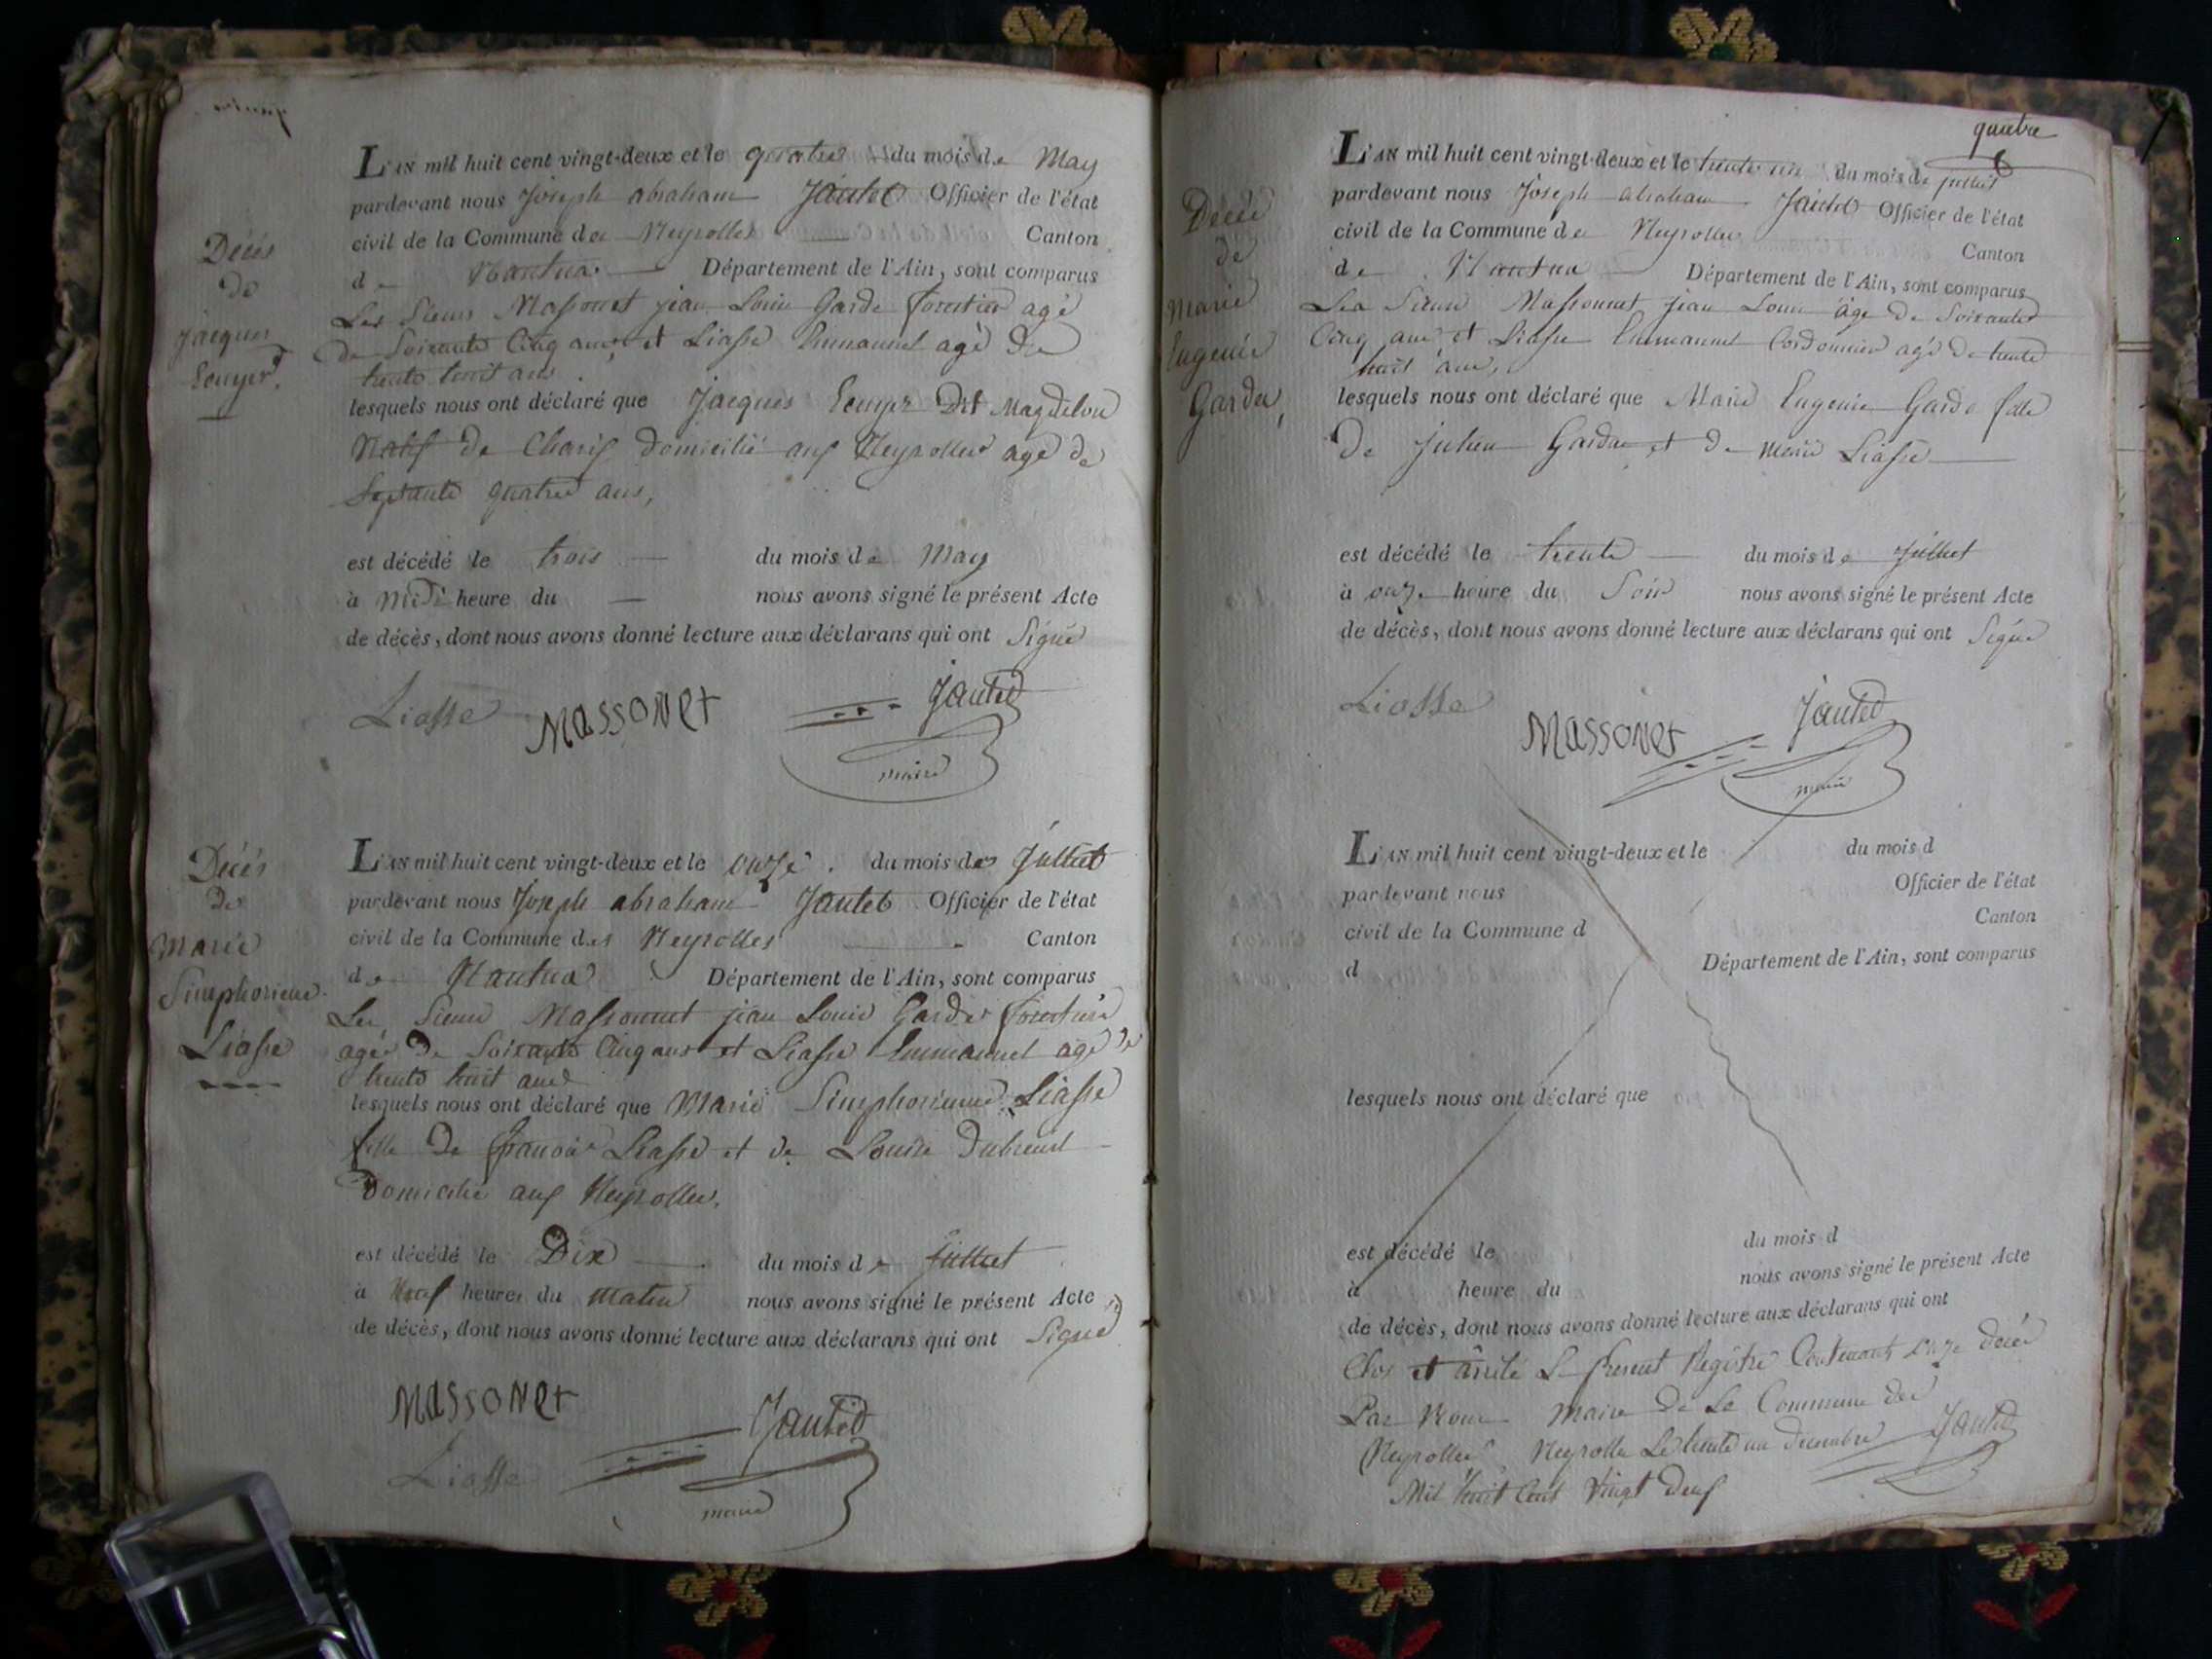 Décès
de
jacques
Ecuyer.
L'AN mil huit cent vingt-deux et le quatre du mois de May
pardevant nous Joseph abraham Jautet Officier de l'état
civil de la Commune des Neyrolles Canton
de Nantua Département de l'Ain, sont comparus
Les Sieurs Massonnet jean Louis Garde forestier agé
de Soixante Cinq ans, et Liasse Emmanuel agé de
trente huit ans
lesquels nous ont déclaré que Jacques Ecuyer Dit Magdelon
Natif de Charix domicilié aux Neyrolles agé de
Septante quatre ans,
est décédé le trois du mois de May
à midi heure du — nous avons signé le présent Acte
de décès, dont nous avons donné lecture aux déclarans qui ont Signé
Liasse Massonet Jautet
maire
Décès
de
Marie
Simphorienne
Liasse
L'AN mil huit cent vingt-deux et le onze du mois de Juillet
pardevant nous Joseph abraham Jautet Officier de l'état
civil de la Commune des Neyrolles Canton
de Nantua Département de l'Ain, sont comparus
Les Sieurs Massonnet jean Louis Garde forestier
agé de Soixante Cinq ans et Liasse Emmanuel agé de
trente huit ans
lesquels nous ont déclaré que Marie Simphorienne Liasse
fille de françois Liasse et de Louise Dubreuil
Domicilié aux Neyrolles.
est décédé le Dix du mois de Juillet
à Neuf heures du Matin nous avons signé le présent Acte
de décès, dont nous avons donné lecture aux déclarans qui ont Signé
Massonet Jautet
Liasse
maire
quatre
Décès
de
Marie
Eugenie
Gardu,
L'AN mil huit cent vingt-deux et le trente un du mois de juillet
pardevant nous Joseph abraham Jautet Officier de l'état
civil de la Commune des Neyrolles
Canton
de Nantua Département de l'Ain, sont comparus
Les Sieurs Massonnet Jean Louis âgé de Soixante
Cinq ans et Liasse Emmanuel Cordonnier agé de trente
huit ans,
lesquels nous ont déclaré que Marie Eugenie Garde fille
de Julien et de Marie Liasse
est décédé le trente du mois de Juillet
à onze heure du Soir nous avons signé le présent Acte
de décès, dont nous avons donné lecture aux déclarans qui ont Signé
Liasse Massonet Jautet
maire
L'AN mil huit cent vingt-deux et le du mois d
pardevant nous Officier de l'état
civil de la Commune d Canton
d Département de l'Ain, sont comparus
lesquels nous ont déclaré que
est décédé le du mois d
à heure du nous avons signé le présent Acte
de décès, dont nous avons donné lecture aux déclarans qui ont
Clos et arrêté Le present Registre Contenant onze décès
Par Nous Maire de La Commune des
Neyrolles, Neyrolles Le trente un decembre Jautet
Mil huit Cent Vingt deux